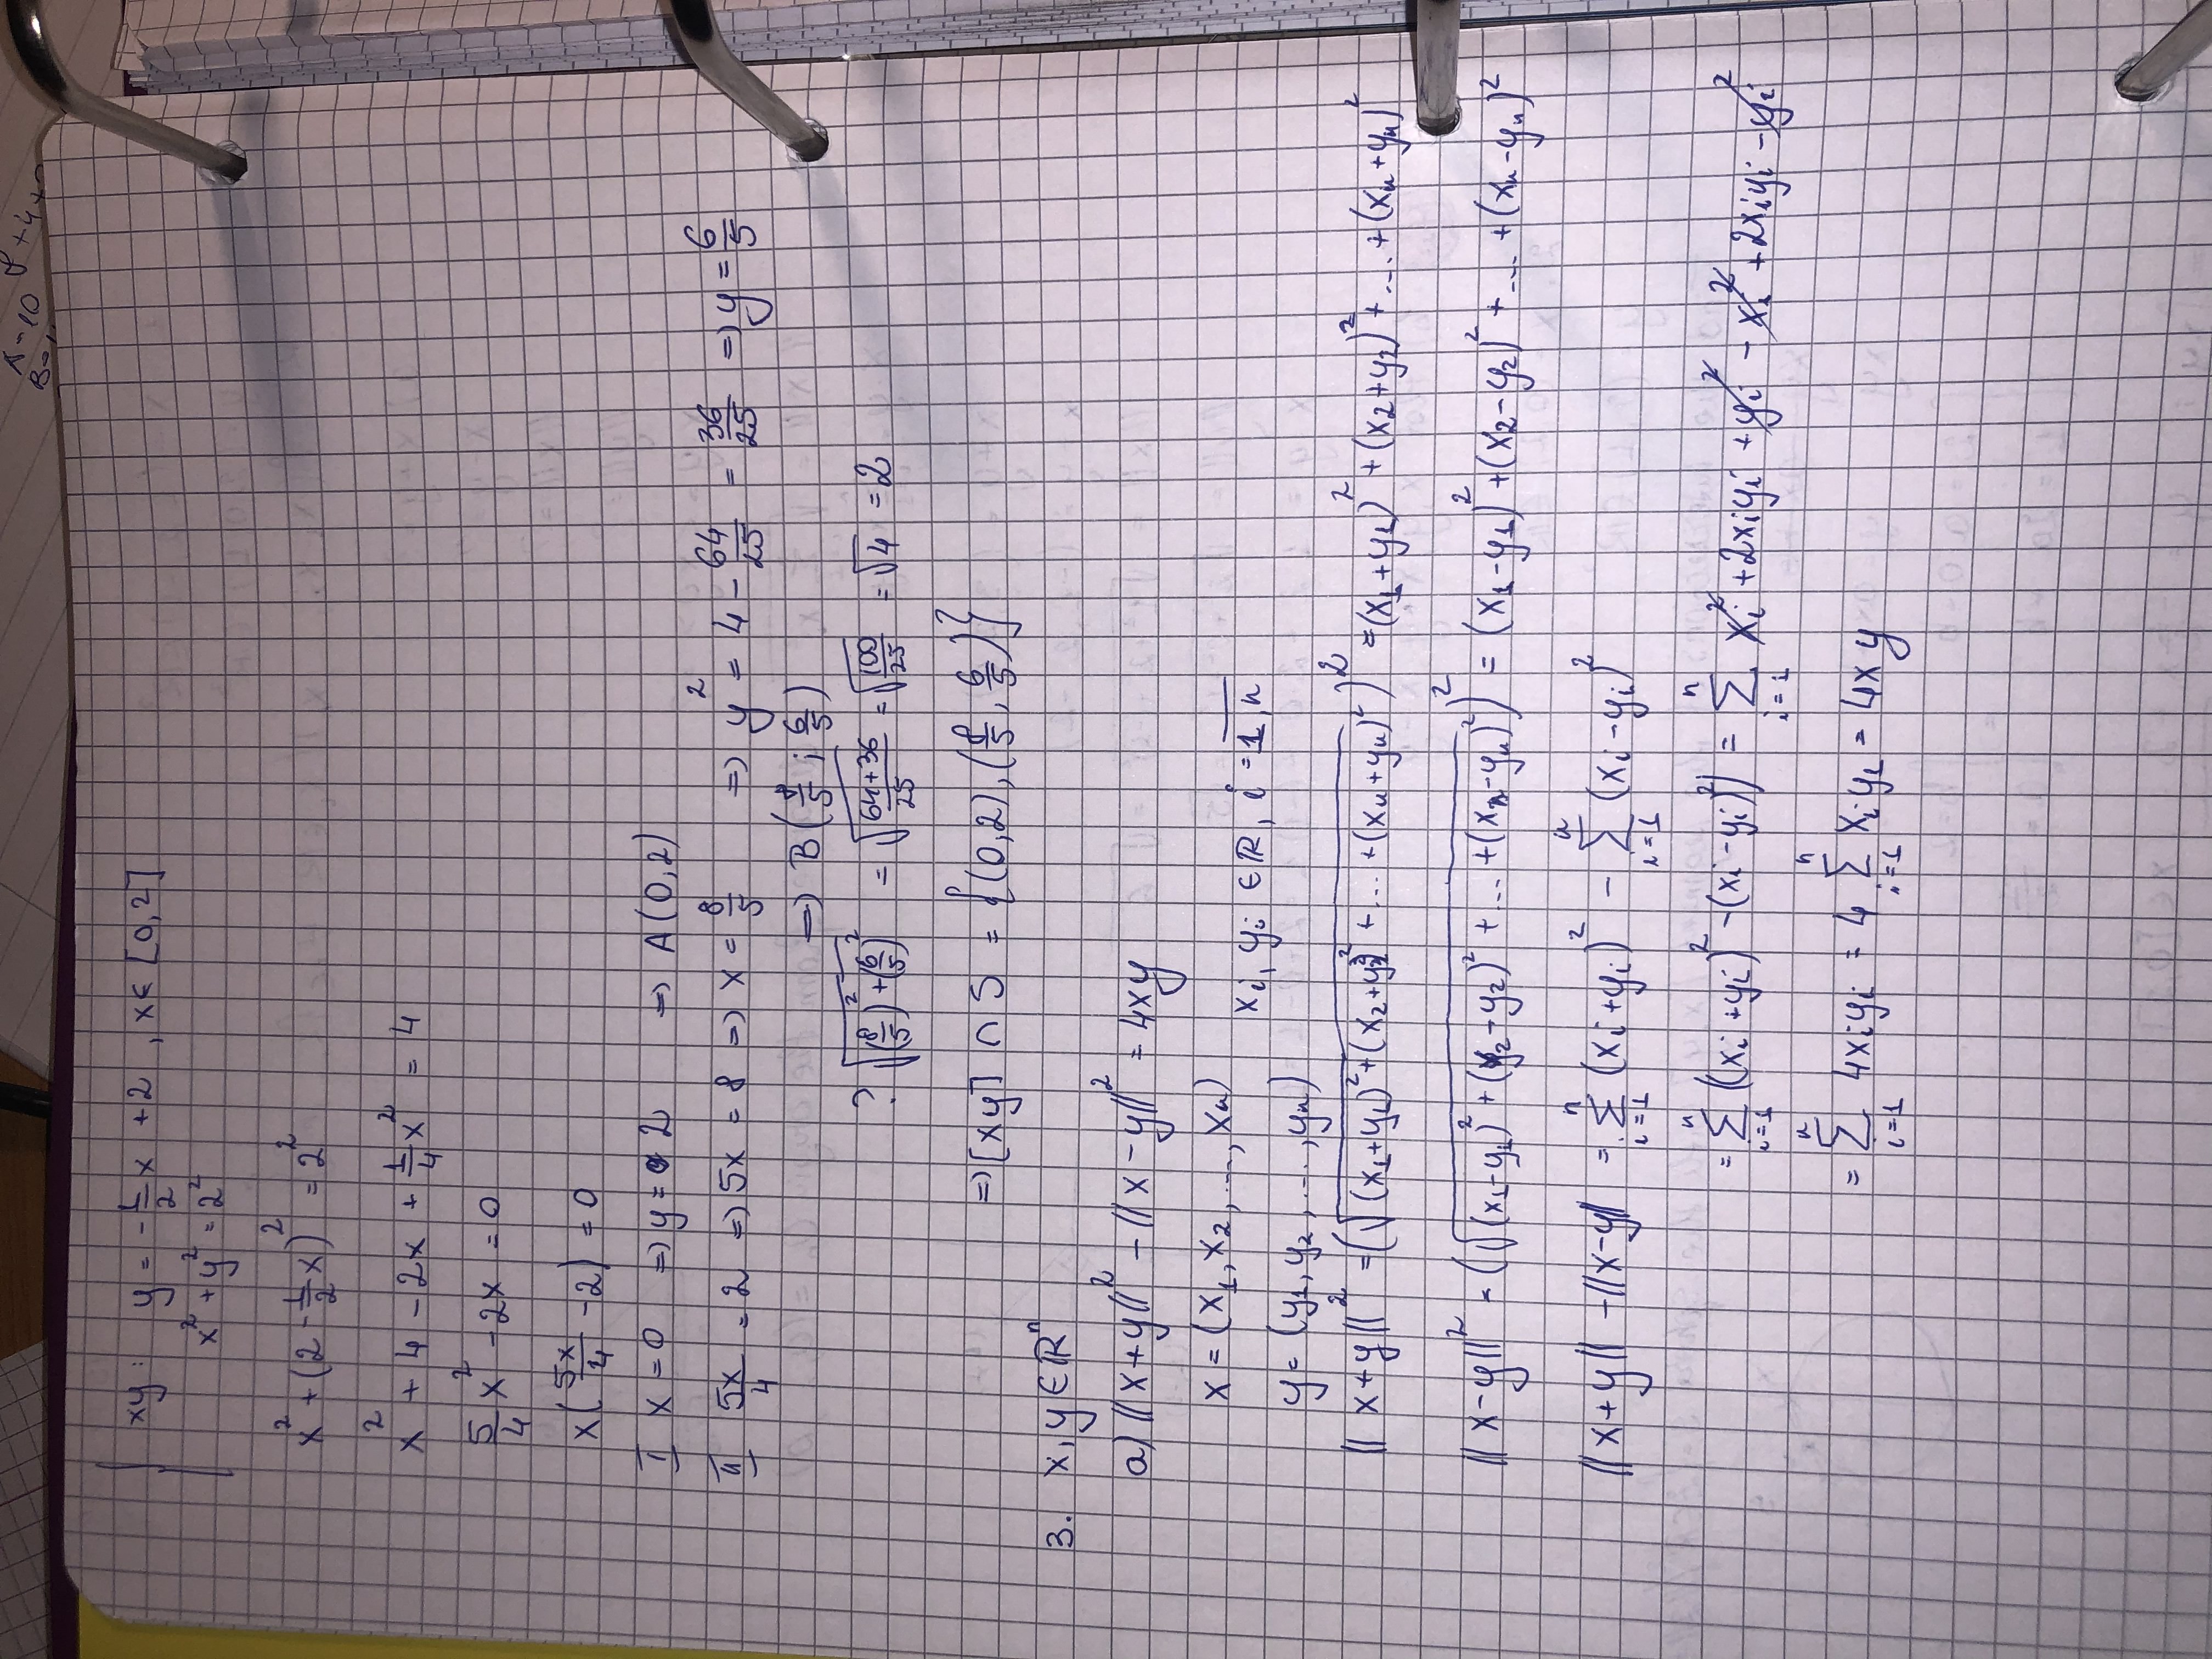 A = 10
xy : y = -1/2 x + 2 , x ∈ [0,2]
x² + y² = 2²
x² + (2 - 1/2 x)² = 2²
x² + 4 - 2x + 1/4 x² = 4
5/4 x² - 2x = 0
x(5x/4 - 2) = 0
I x = 0 => y = 2 => A(0,2)
II 5x/4 = 2 => 5x = 8 => x = 8/5 => y² = 4 - 64/25 = 36/25 => y = 6/5
=> B( /5 ; 6/5)
? √((8/5)² + (6/5)²) = √((64+36)/25) = √(100/25) = √4 = 2
=> [xy] ∩ S = {(0,2), (8/5, 6/5)}
3. x, y ∈ ℝⁿ
a) ||x+y||² - ||x-y||² = 4xy
x = (x₁, x₂, ..., xₙ)
xᵢ, yᵢ ∈ ℝ, i = 1,n
y = (y₁, y₂, ..., yₙ)
||x+y||² = (√((x₁+y₁)² + (x₂+y₂)² + ... + (xₙ+yₙ)²))² = (x₁+y₁)² + (x₂+y₂)² + ... + (xₙ+yₙ)²
||x-y||² = (√((x₁-y₁)² + (x₂-y₂)² + ... + (xₙ-yₙ)²))² = (x₁-y₁)² + (x₂-y₂)² + ... + (xₙ-yₙ)²
||x+y|| - ||x-y|| = Σᵢ₌₁ⁿ (xᵢ+yᵢ)² - Σᵢ₌₁ⁿ (xᵢ-yᵢ)²
= Σᵢ₌₁ⁿ ((xᵢ+yᵢ)² - (xᵢ-yᵢ)²) = Σᵢ₌₁ⁿ xᵢ² + 2xᵢyᵢ + yᵢ² - xᵢ² + 2xᵢyᵢ - yᵢ²
= Σᵢ₌₁ⁿ 4xᵢyᵢ = 4 Σᵢ₌₁ⁿ xᵢy₁ = 4xy